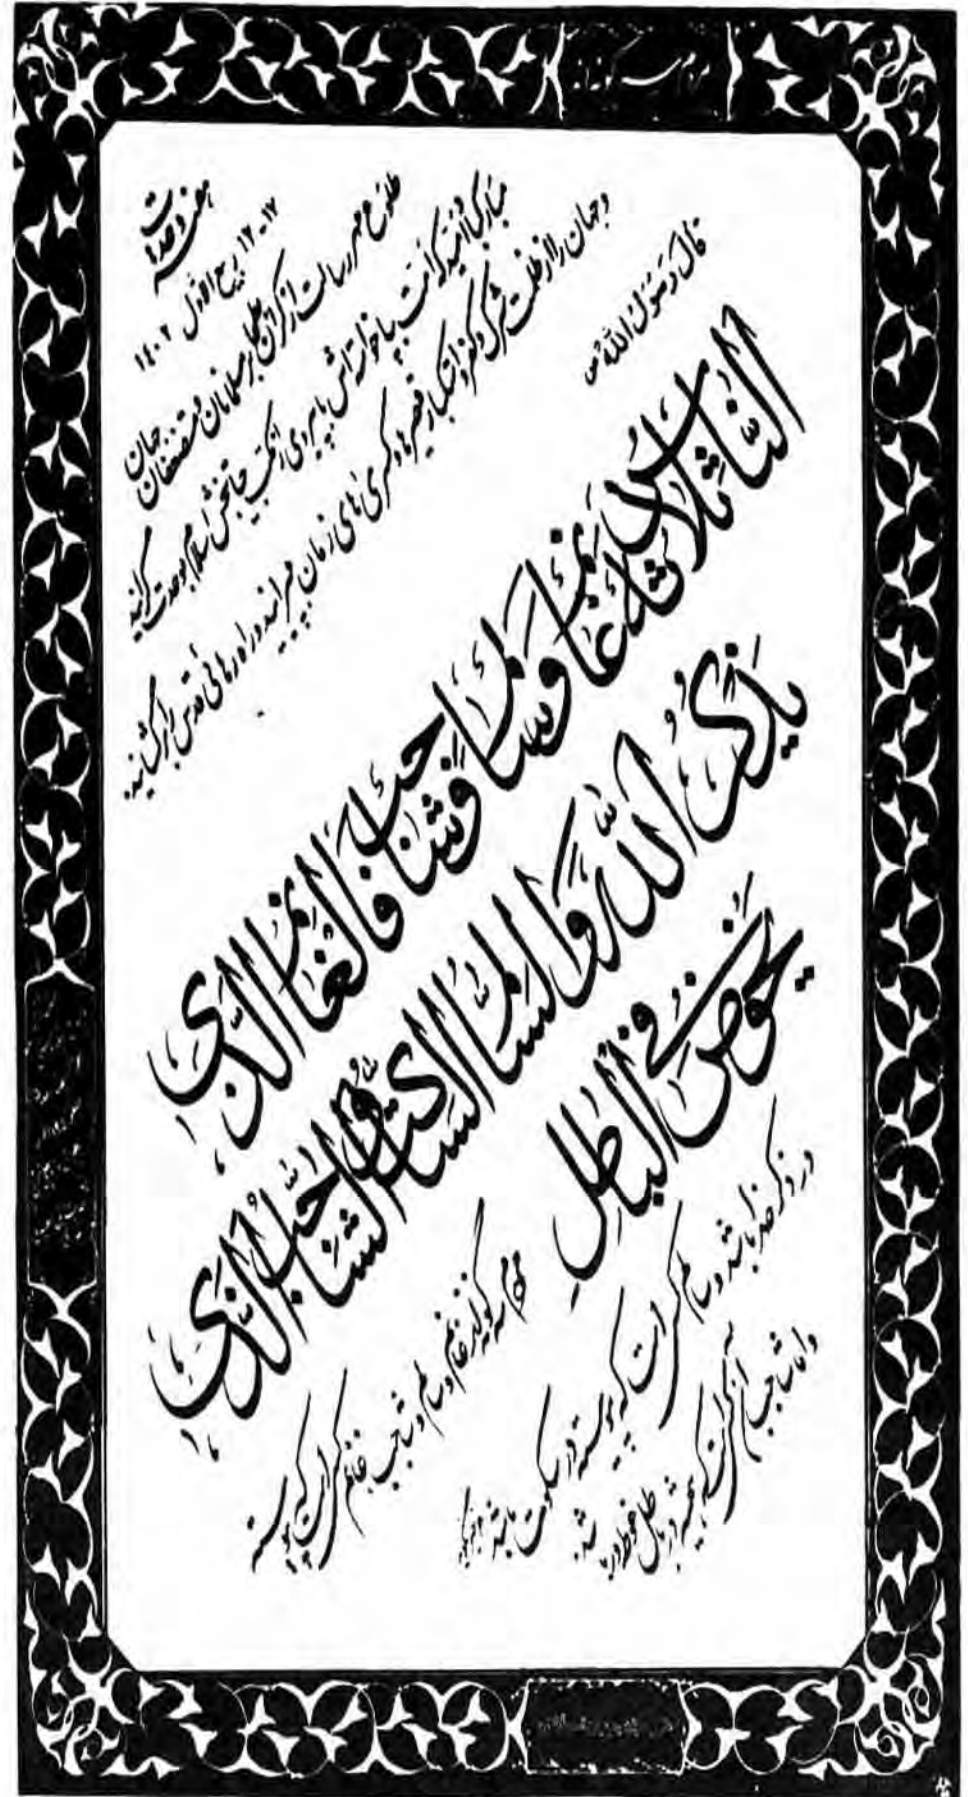 هفته وحدت
۱۲-۱۷ ربیع الاول ۱۴۰۲
طلوع مهر رسالت از کران بطحا بر مسلمانان و مستضعفان جهان
مبارکباد امید که امت بپا خواسته اش با پیروی از مکتب جانبخش اسلام وحدت گرایند
و جهان را از ظلمت شرک و کفر و استکبار قیصرها و کسری های زمان برهانند و راه رهائی قدس را برگشایند.
قال رسول الله ص
النّاسُ ثلاثةٌ غانِمٌ وسالِمٌ وشاجبٌ فالغانِمُ الّذی
یذکرُ اللهَ والسّالِمُ السّاکتُ والشّاجبُ الّذی
یخوضُ فی الباطِلِ
مردم سه گونه‌اند غانم و سالم و شاجب غانم کسی است که پیوسته
در ذکر خدا باشد و سالم کسی است که پیوسته در سکوت باشد
و اما شاجب آن کس است که همیشه در باطل غوطه‌ور باشد.